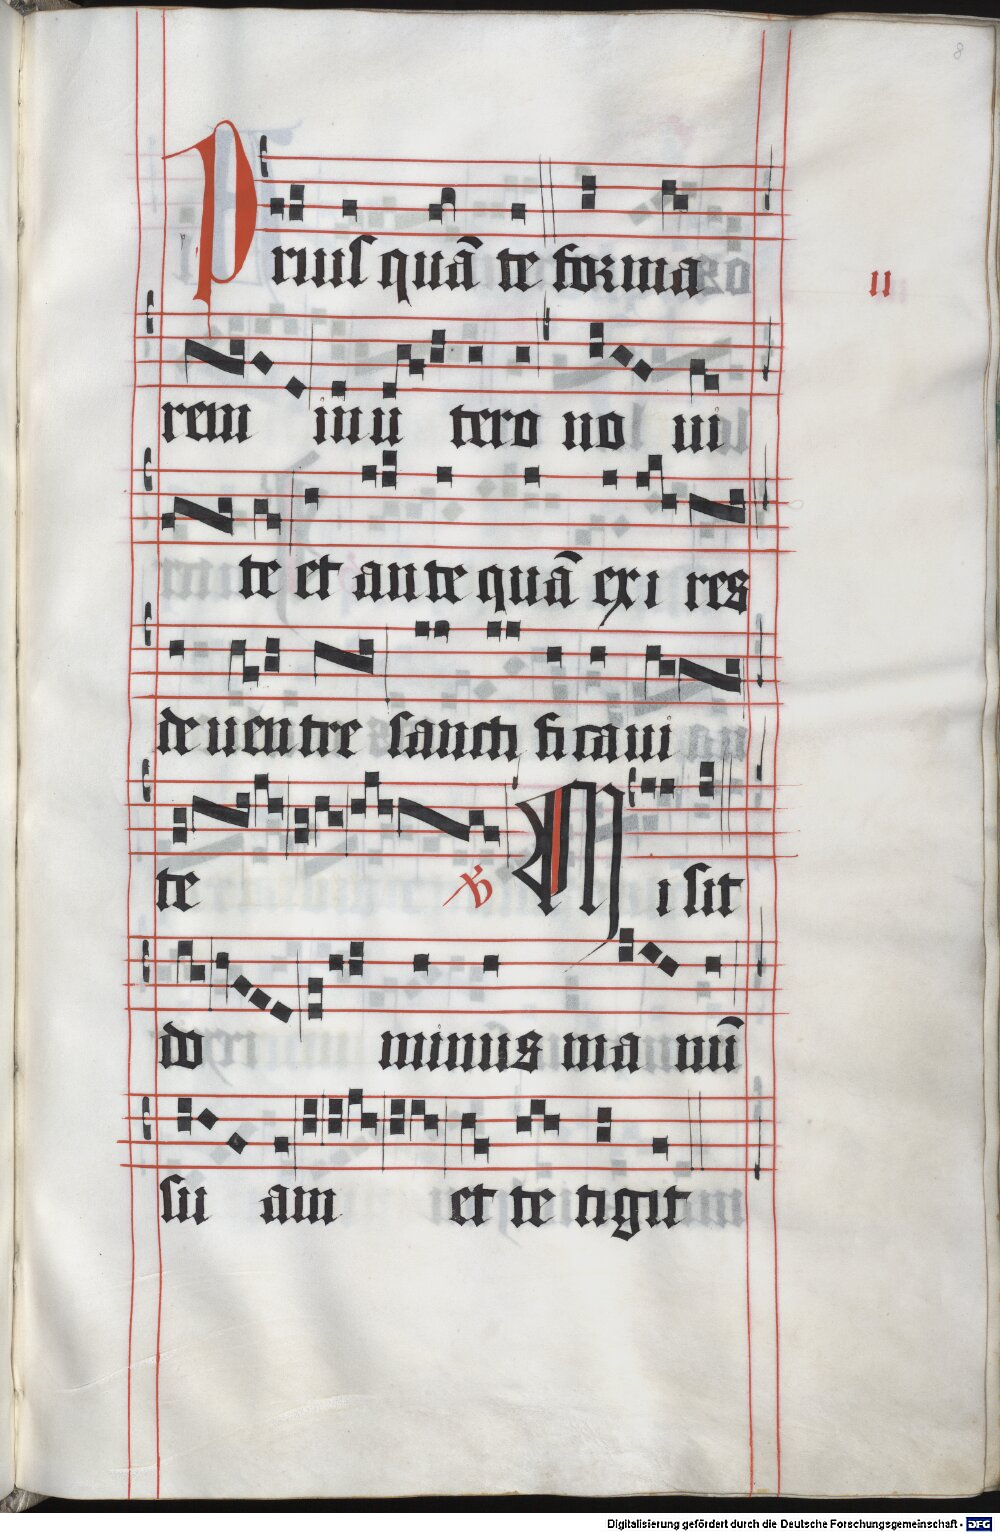 8
Priusquā te forma
ii
rem inu tero no l ui
te et ante quā exi res
de uentre sancti ficaui
te ℣ Misit
do minus ma nū
su am et te tigit
Digitalisierung gefördert durch die Deutsche Forschungsgemeinschaft - DFG